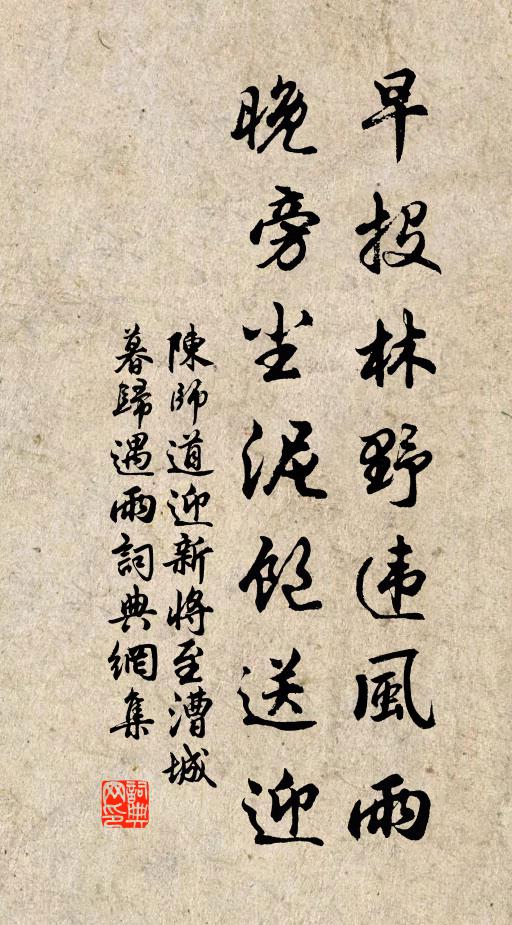 早投林野违風雨
晚旁尘泥饱送迎
陳師道迎新將至漕城
暮歸遇雨詞典網集
詞典
网印